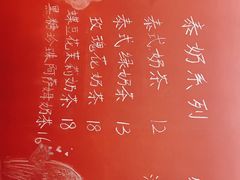 泰奶系列
泰式奶茶 12
泰式绿奶茶 13
玫瑰花奶茶 18
蝶豆花茉莉奶茶 18
黑糖珍珠阿萨姆奶茶 16